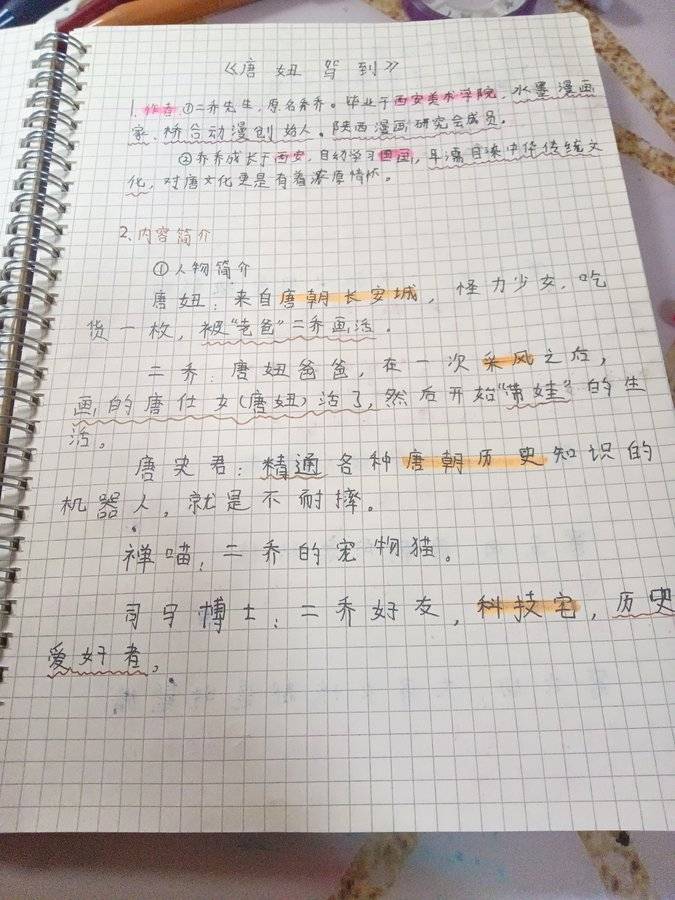 《唐妞驾到》
1.作者 ①二乔先生,原名乔乔。毕业于西安美术学院,水墨漫画
家、桥合动漫创始人。陕西漫画研究会成员。
②乔乔成长于西安,自幼学习国画,耳濡目染中华传统文
化,对唐文化更是有着浓厚情怀。
2.内容简介
①人物简介
唐妞:来自唐朝长安城,怪力少女,吃
货一枚,被“老爸”二乔画活。
二乔:唐妞爸爸,在一次采风之后,
画的唐仕女(唐妞)活了,然后开始“带娃”的生
活。
唐史君:精通各种唐朝历史知识的
机器人,就是不耐摔。
禅喵:二乔的宠物猫。
司马博士:二乔好友,科技宅,历史
爱好者。